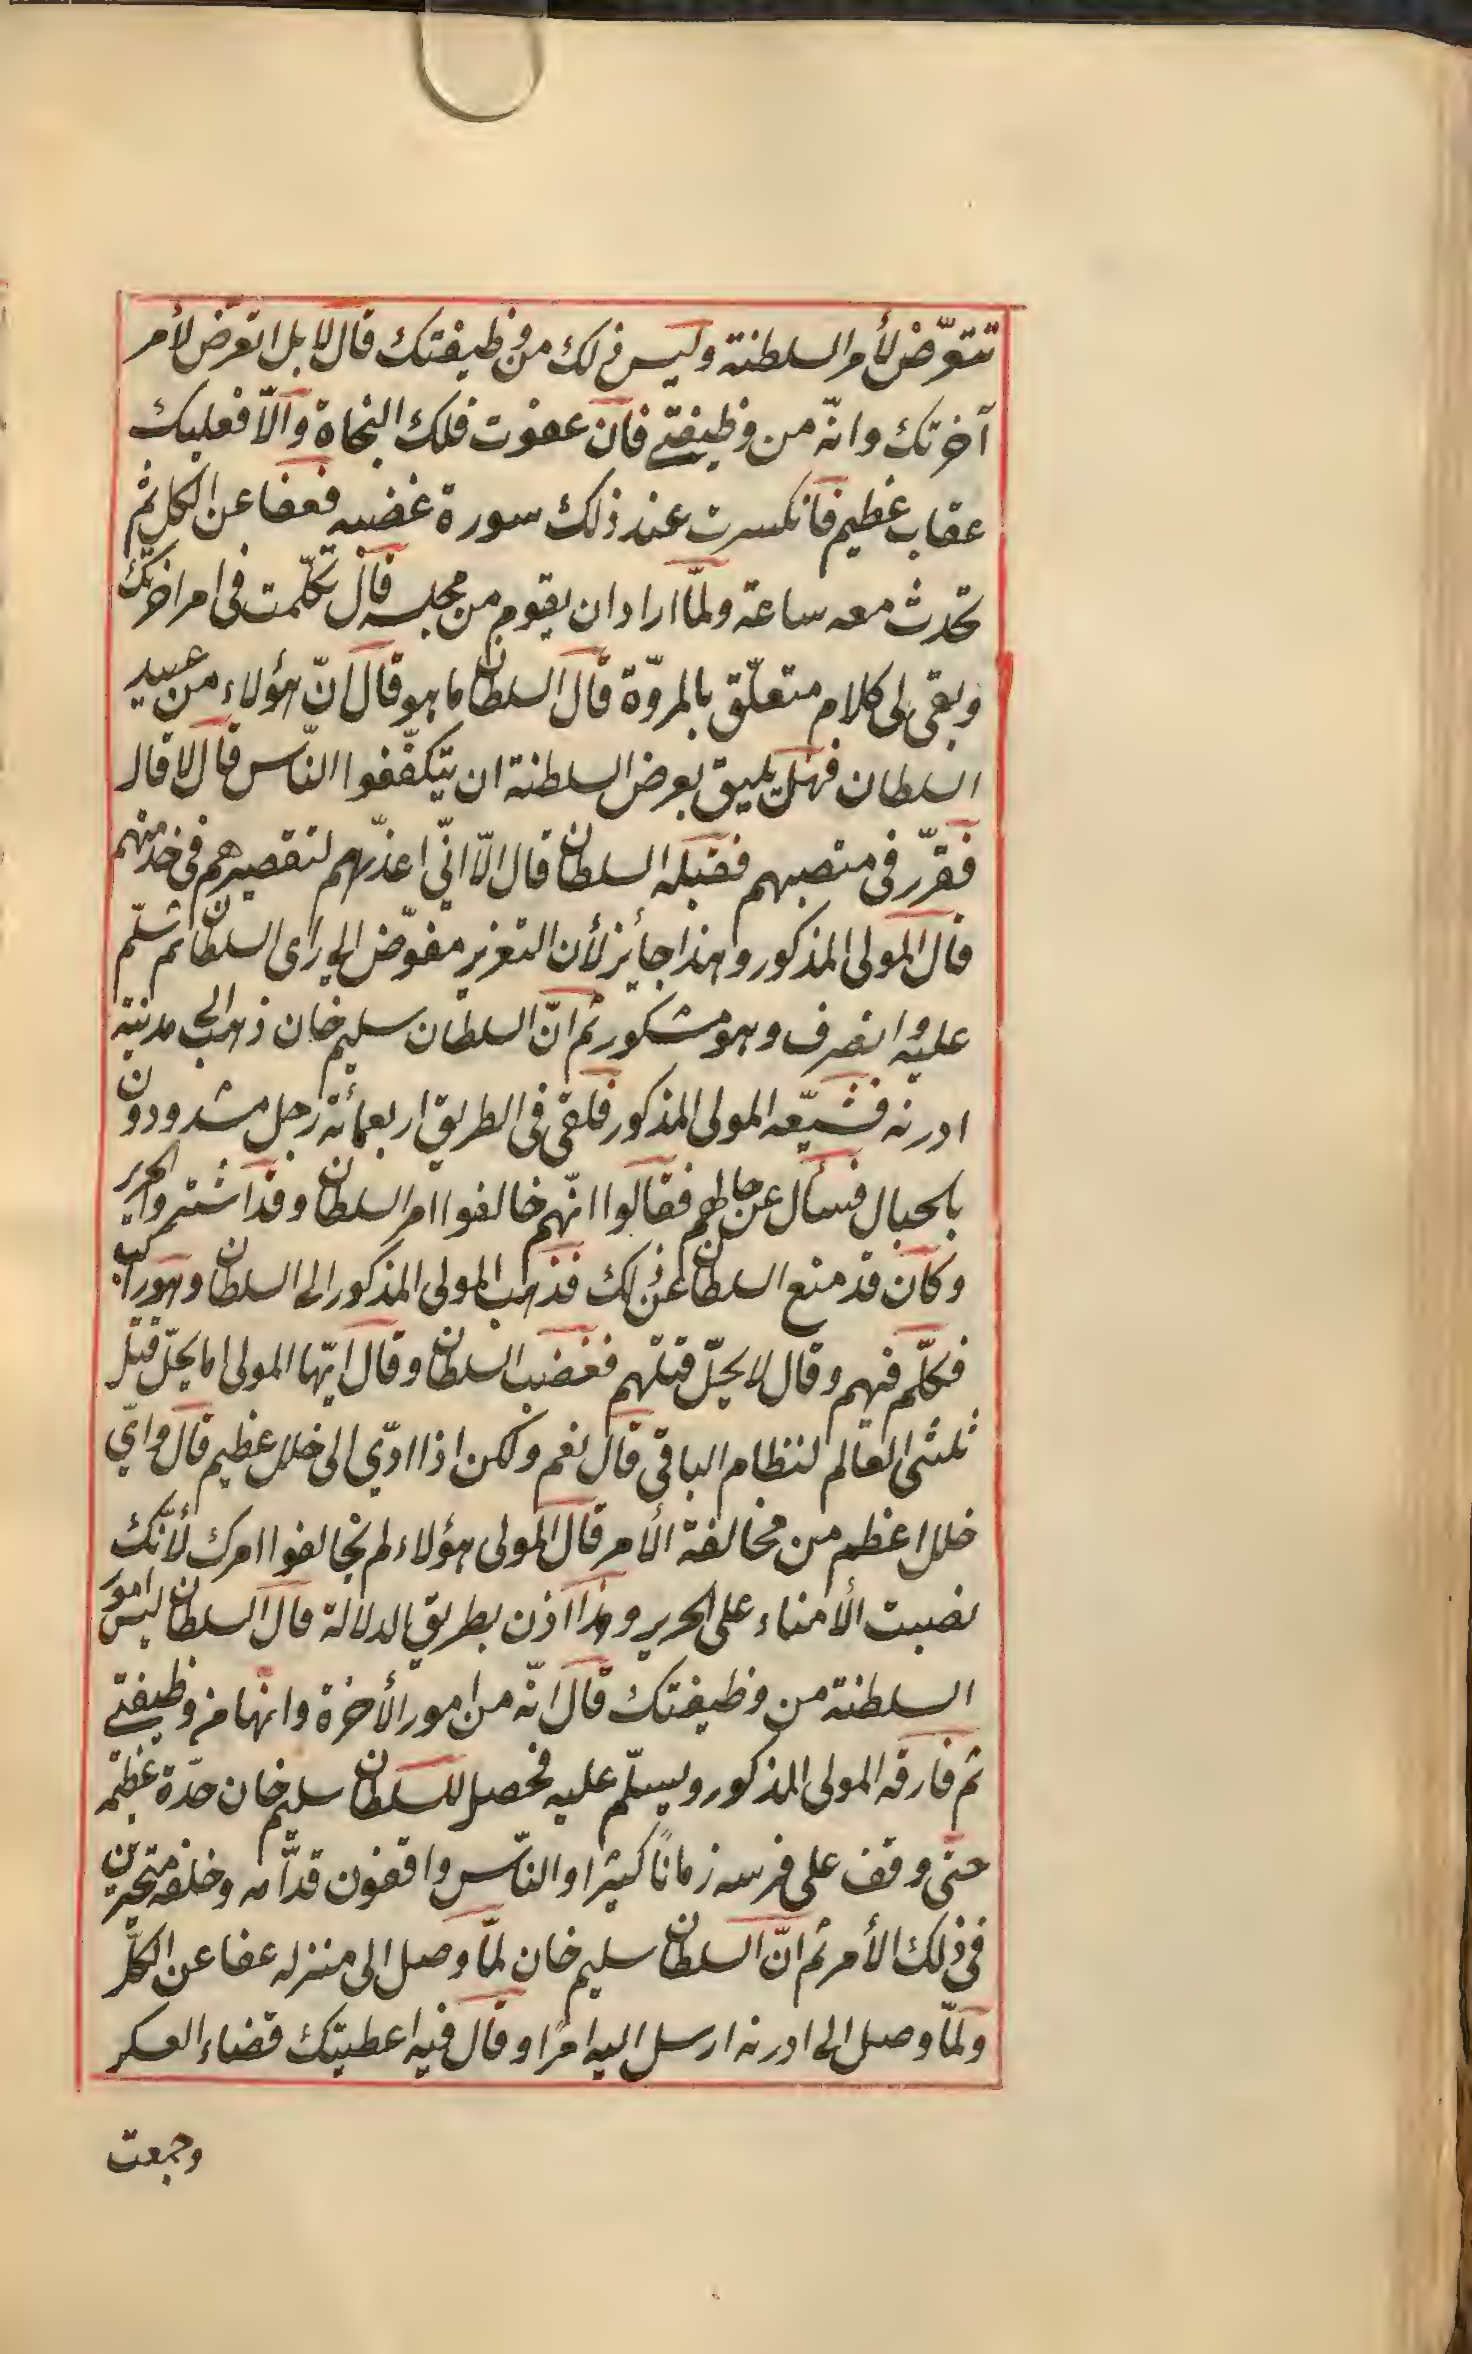 تتعرّض لأمر السلطنة وليس ذلك من وظيفتك قال لا بل اتعرّض لأمر
آخرتك وانّه من وظيفتي فان عفوت فلك النجاة والّا فعليك
عقاب عظيم فانكسرت عند ذلك سورة غضبه فعفا عن الكل ثم
تحدث معه ساعة ولمّا اراد ان يقوم من مجلسه قال تكلّمت في امر اخرتك
وبقى لى كلام متعلّق بالمروّة قال السلطان ما هو قال انّ هؤلاء من عبيد
السلطان فهل يليق بعرض السلطنة ان يتكفّفوا النّاس قال لا قال
فقرّر في منصبهم فقبله السلطان قال الّا انّي اعذّرهم لتقصيرهم في خدمتهم
قال المولى المذكور وهذا جائز لأن التعزير مفوّض الى رأى السلطان ثم سلّم
عليه وانصرف وهو مشكور ثم انّ السلطان سليم خان ذهب الى مدينة
ادرنه فشيّعه المولى المذكور فلقى في الطريق اربعمائة رجل مشدودون
بالحبال فسأل عن حالهم فقالوا انّهم خالفوا امر السلطان وقد اشتروا الحرير
وكان قد منع السلطان عن ذلك فذهب المولى المذكور الى السلطان وهو راكب
فكلّم فيهم وقال لا يحلّ قتلهم فغضب السلطان وقال ايّها المولى اما يحلّ قتل
ثلثى العالم لنظام الباقى قال نعم ولكن اذا ادّى الى خلل عظيم قال وايّ
خلل اعظم من مخالفة الأمر قال المولى هؤلاء لم يخالفوا امرك لأنّك
نصبت الأمناء على الحرير وهذا اذن بطريق الدلالة قال السلطان ليس امور
السلطنة من وظيفتك قال انّه من امور الأخرة وانها من وظيفتي
ثم فارقه المولى المذكور ويسلّم عليه فحصل للسلطان سليم خان حدّة عظيمة
حتى وقف على فرسه زمانًا كثيرا والنّاس واقفون قدّامه وخلفه متحيرين
في ذلك الأمر ثم انّ السلطان سليم خان لمّا وصل الى منزله عفا عن الكلّ
ولمّا وصل الى ادرنه ارسل اليه امرًا وقال فيه اعطيتك قضاء العسكر
وجمعت